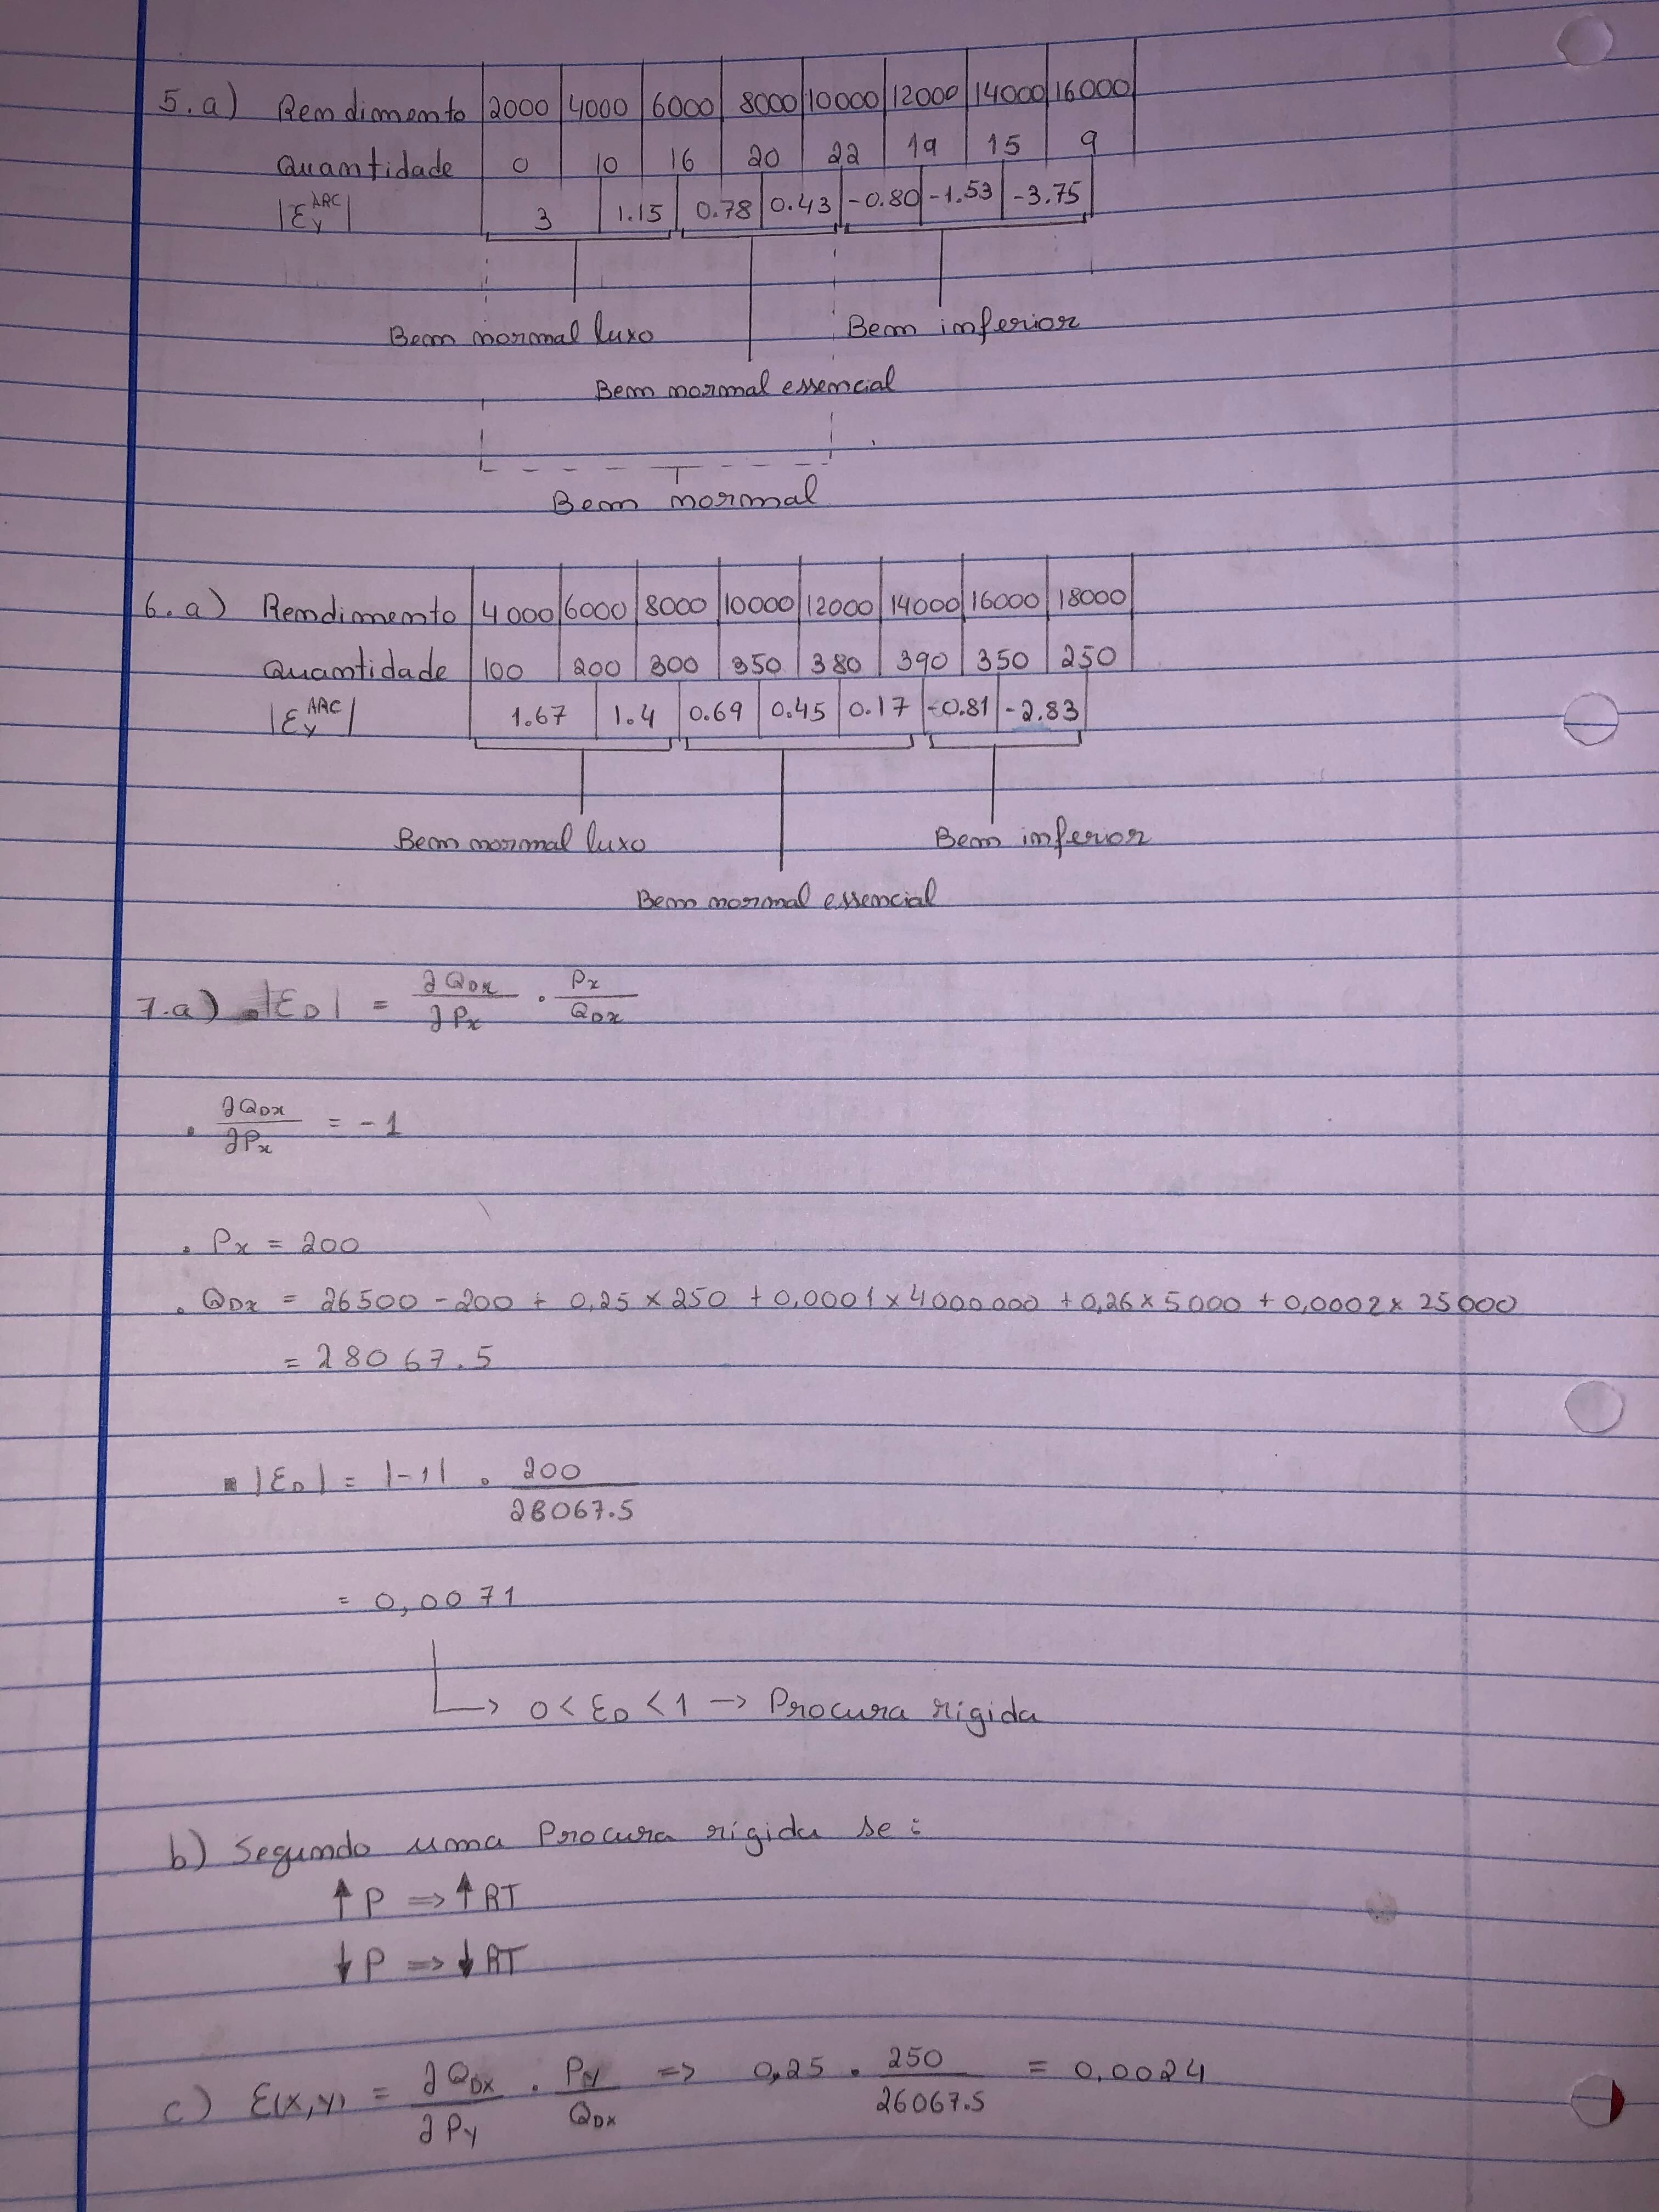 5.a) Rendimento 2000 4000 6000 8000 10000 12000 14000 16000
Quantidade 0 10 16 20 22 19 15 9
|Ɛy^ARC| 3 1.15 0.78 0.43 -0.80 -1.53 -3.75
Bem normal luxo Bem inferior
Bem normal essencial
Bem normal
6.a) Rendimento 4000 6000 8000 10000 12000 14000 16000 18000
Quantidade 100 200 300 350 380 390 350 250
|Ɛy^ARC| 1.67 1.4 0.69 0.45 0.17 -0.81 -2.83
Bem normal luxo Bem inferior
Bem normal essencial
7.a) |ƐD| = ∂QDx/∂Px . Px/QDx
. ∂QDx/∂Px = -1
. Px = 200
. QDx = 26500 - 200 + 0,25 × 250 + 0,0001 × 4000000 + 0,26 × 5000 + 0,0002 × 25000
= 28067.5
▪ |ƐD| = |-1| . 200/28067.5
= 0,0071
↳ 0 < ƐD < 1 → Procura rigida
b) Segundo uma Procura rígida se:
↑P ⇒ ↑RT
↓P ⇒ ↓RT
c) Ɛ(x,y) = ∂QDx/∂Py . Py/QDx ⇒ 0,25 . 250/26067.5 = 0,0024